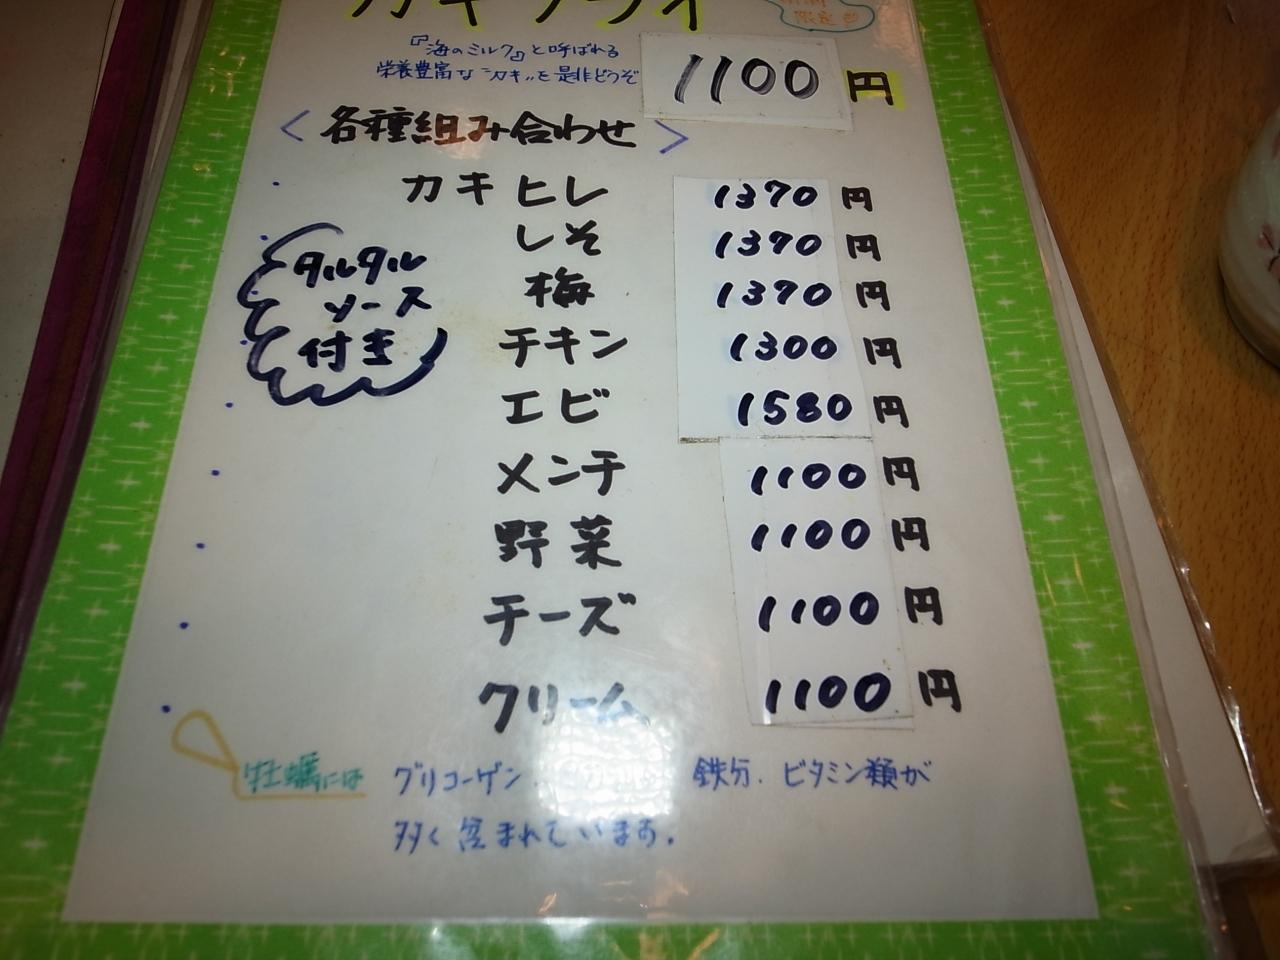 カキフライ
限定
『海のミルク』と呼ばれる
栄養豊富な"カキ"を是非どうぞ
1100円
<各種組み合わせ>
カキヒレ 1370円
しそ 1370円
梅 1370円
チキン 1300円
エビ 1580円
メンチ 1100円
野菜 1100円
チーズ 1100円
クリーム 1100円
タルタル
ソース
付き
牡蠣には グリコーゲン 鉄分、ビタミン類が
多く含まれています。